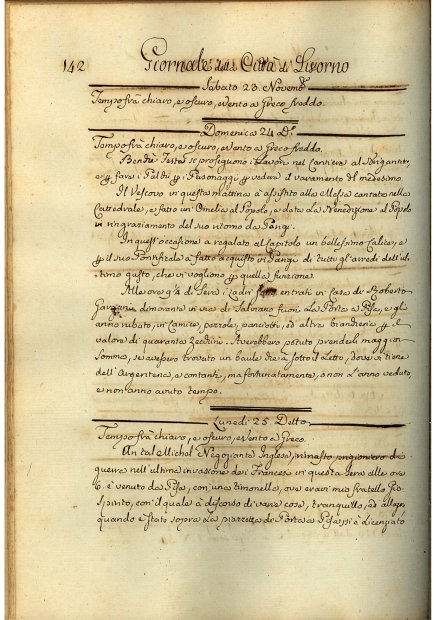 142 Giornale della Città di Livorno
Sabato 23. Novemb.
Tempo frà chiaro, e oscuro, e Vento a Greco freddo.
Domenica 24 D.
Tempo frà chiaro, e oscuro, e Vento a Greco freddo.
Benche Festa si proseguono i Lavori nel Cantiere al Brigantino,
e si fara i Palchi p i Personaggi p vedere il varamento del medesimo.
Il Vescovo in questa mattina à assistito alla Messa cantata nella
Cattedrale, e fatto un'Omelia al Popolo, e data la Benedizione al Popolo
in ringraziamento del suo ritorno da Parigi.
In quest'occasione a regalato al Capitolo un bellissimo Calice, e
p il suo Pontificale a fatto acquisto in Parigi di tutti gl'arredi dell'ul-
timo gusto, che vi vogliono p quella funzione.
Alle ore di Sera i Ladri sono entrati in Casa di Roberto
dimorante in via di Salviano fuori La Porta a Pisa, e gli
anno rubato, in Camice, pezzole, panciotti, ed altra biancheria p il
valore di quaranta Zecchini. Averebbero potuto prenderli maggior
Somma, se avessero trovato un baule che a sotto il Letto, dove vi tiene
dell'Argenteria, e contanti, ma fortunatamente, o non l'anno veduto,
e non anno avuto tempo.
Lunedi 25 Detto
Tempo frà chiaro, e oscuro, e Vento a Greco.
Un tal Michol Negoziante Inglese, rimasto prigioniero di
guerra nell'ultima invasione dei Francesi in questa Sera alle ore
6. è venuto da Pisa, con una timonella, ove eravi mio fratello
Spirito, con il quale à discorso di varie cose, tranquillo, ed allegro,
quando è stato sopra La piazzetta di Porta a Pisa si è Licenziato